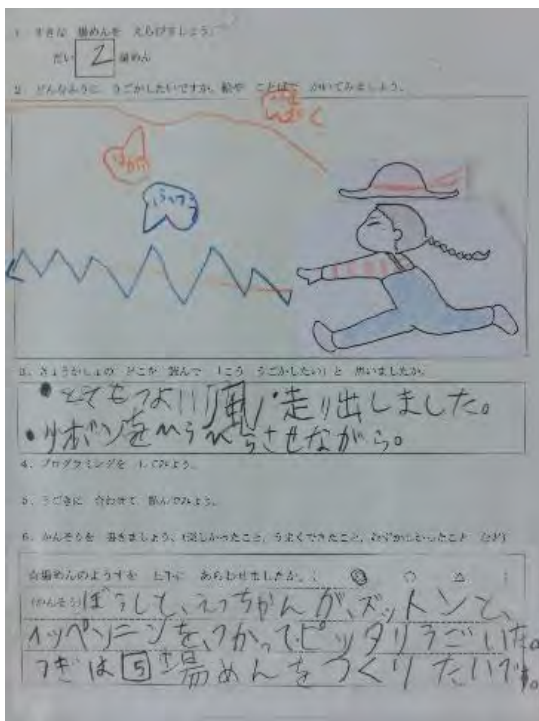 1. すきな 場めんを えらびましょう。
だい 2 場めん
2. どんなふうに うごかしたいですか。絵や ことばで かいてみましょう。
3. きょうかしょの どこを 読んで「こう うごかしたい」と 思いましたか。
・とてもつよい風 ・走り出しました。
・リボンをひらひらさせながら。
4. プログラミングを してみよう。
5. うごきに 合わせて 読んでみよう。
6. かんそうを 書きましょう。(楽しかったこと、うまくできたこと、むずかしかったこと など)
☆場めんのようすを 上手に あらわせましたか。: ◎ ○ △
(かんそう)ぼうしと、えっちゃんが、ズットンと、
イッペンニンを、つかってピッタリうごいた。
つぎは5場めんをつくりたいです。